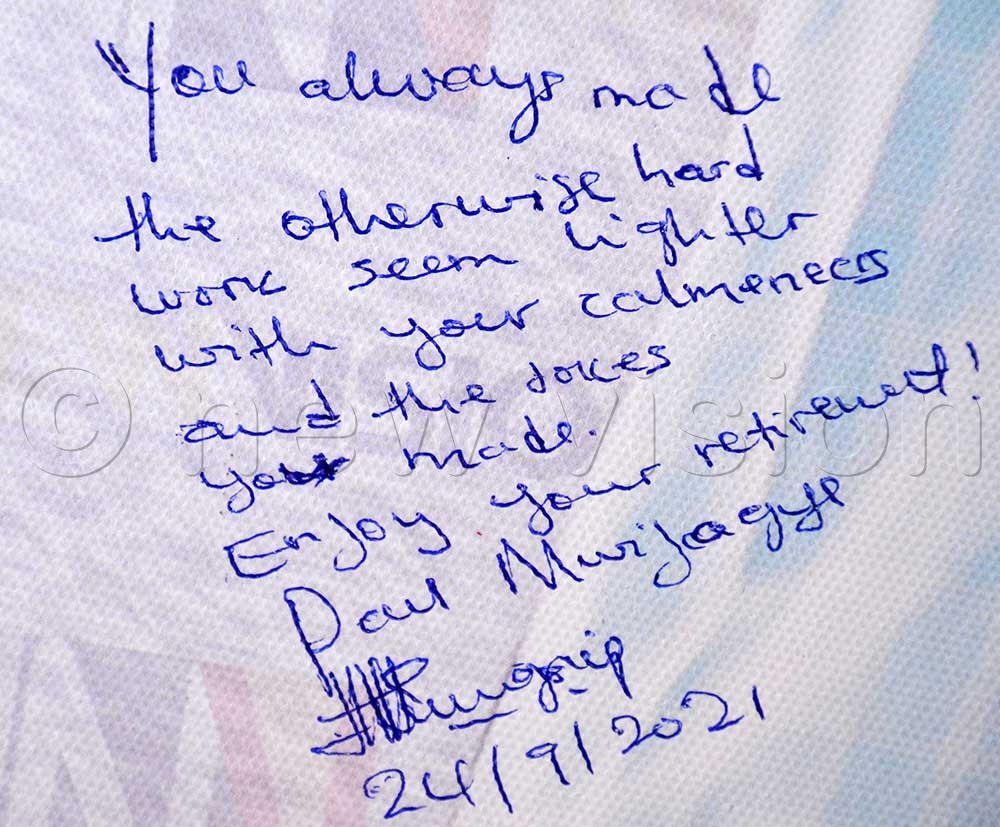 You always made
the otherwise hard
work seem lighter
with your calmeness
and the jokes
you made.
Enjoy your retirement!
Paul Mwijagye
24/9/2021
© new vision